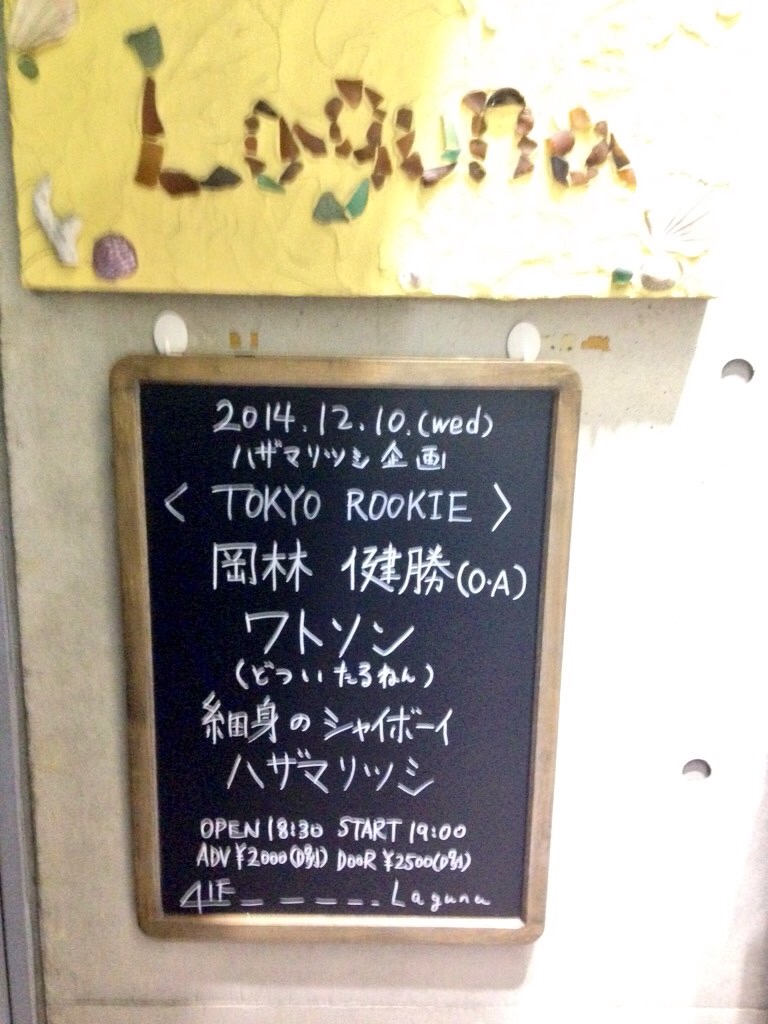 Laguna
2014.12.10.(wed)
ハザマリツシ企画
< TOKYO ROOKIE >
岡林 健勝(O・A)
ワトソン
(どついたるねん)
細身のシャイボーイ
ハザマリツシ
OPEN 18:30 START 19:00
ADV ¥2000(D別) DOOR ¥2500(D別)
4F_ _ _ _ _. Laguna